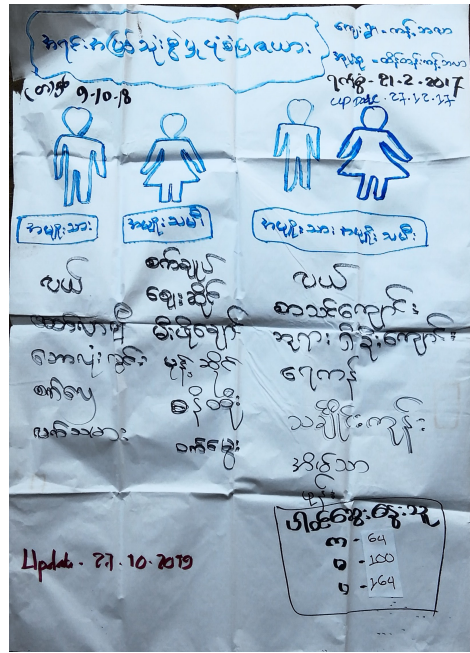 အရင်းအမြစ်သုံးစွဲမှုပုံစံပြဇယား
ကျေးရွာ - ကန်ဘလာ
ရက်စွဲ - 21-2-2017
update - 27.12.17
9-10-18
အမျိုးသား
အမျိုးသမီး
အမျိုးသား အမျိုးသမီး
လယ်
ဘောလုံးကွင်း
လက်သမား
စက်ချုပ်
ဈေးဆိုင်
မီးဖိုချောင်
မုန့်ဆိုင်
ဓနိထိုး
ဝက်မွေး
လယ်
စာသင်ကျောင်း
ဘုရားရှိခိုးကျောင်း
ရေကန်
သင်္ချိုင်းကုန်း
အိမ်သာ
ပါဝင်ဆွေးနွေးသူ
က - 64
မ - 100
ပ - 164
Updat - 27.10.2019